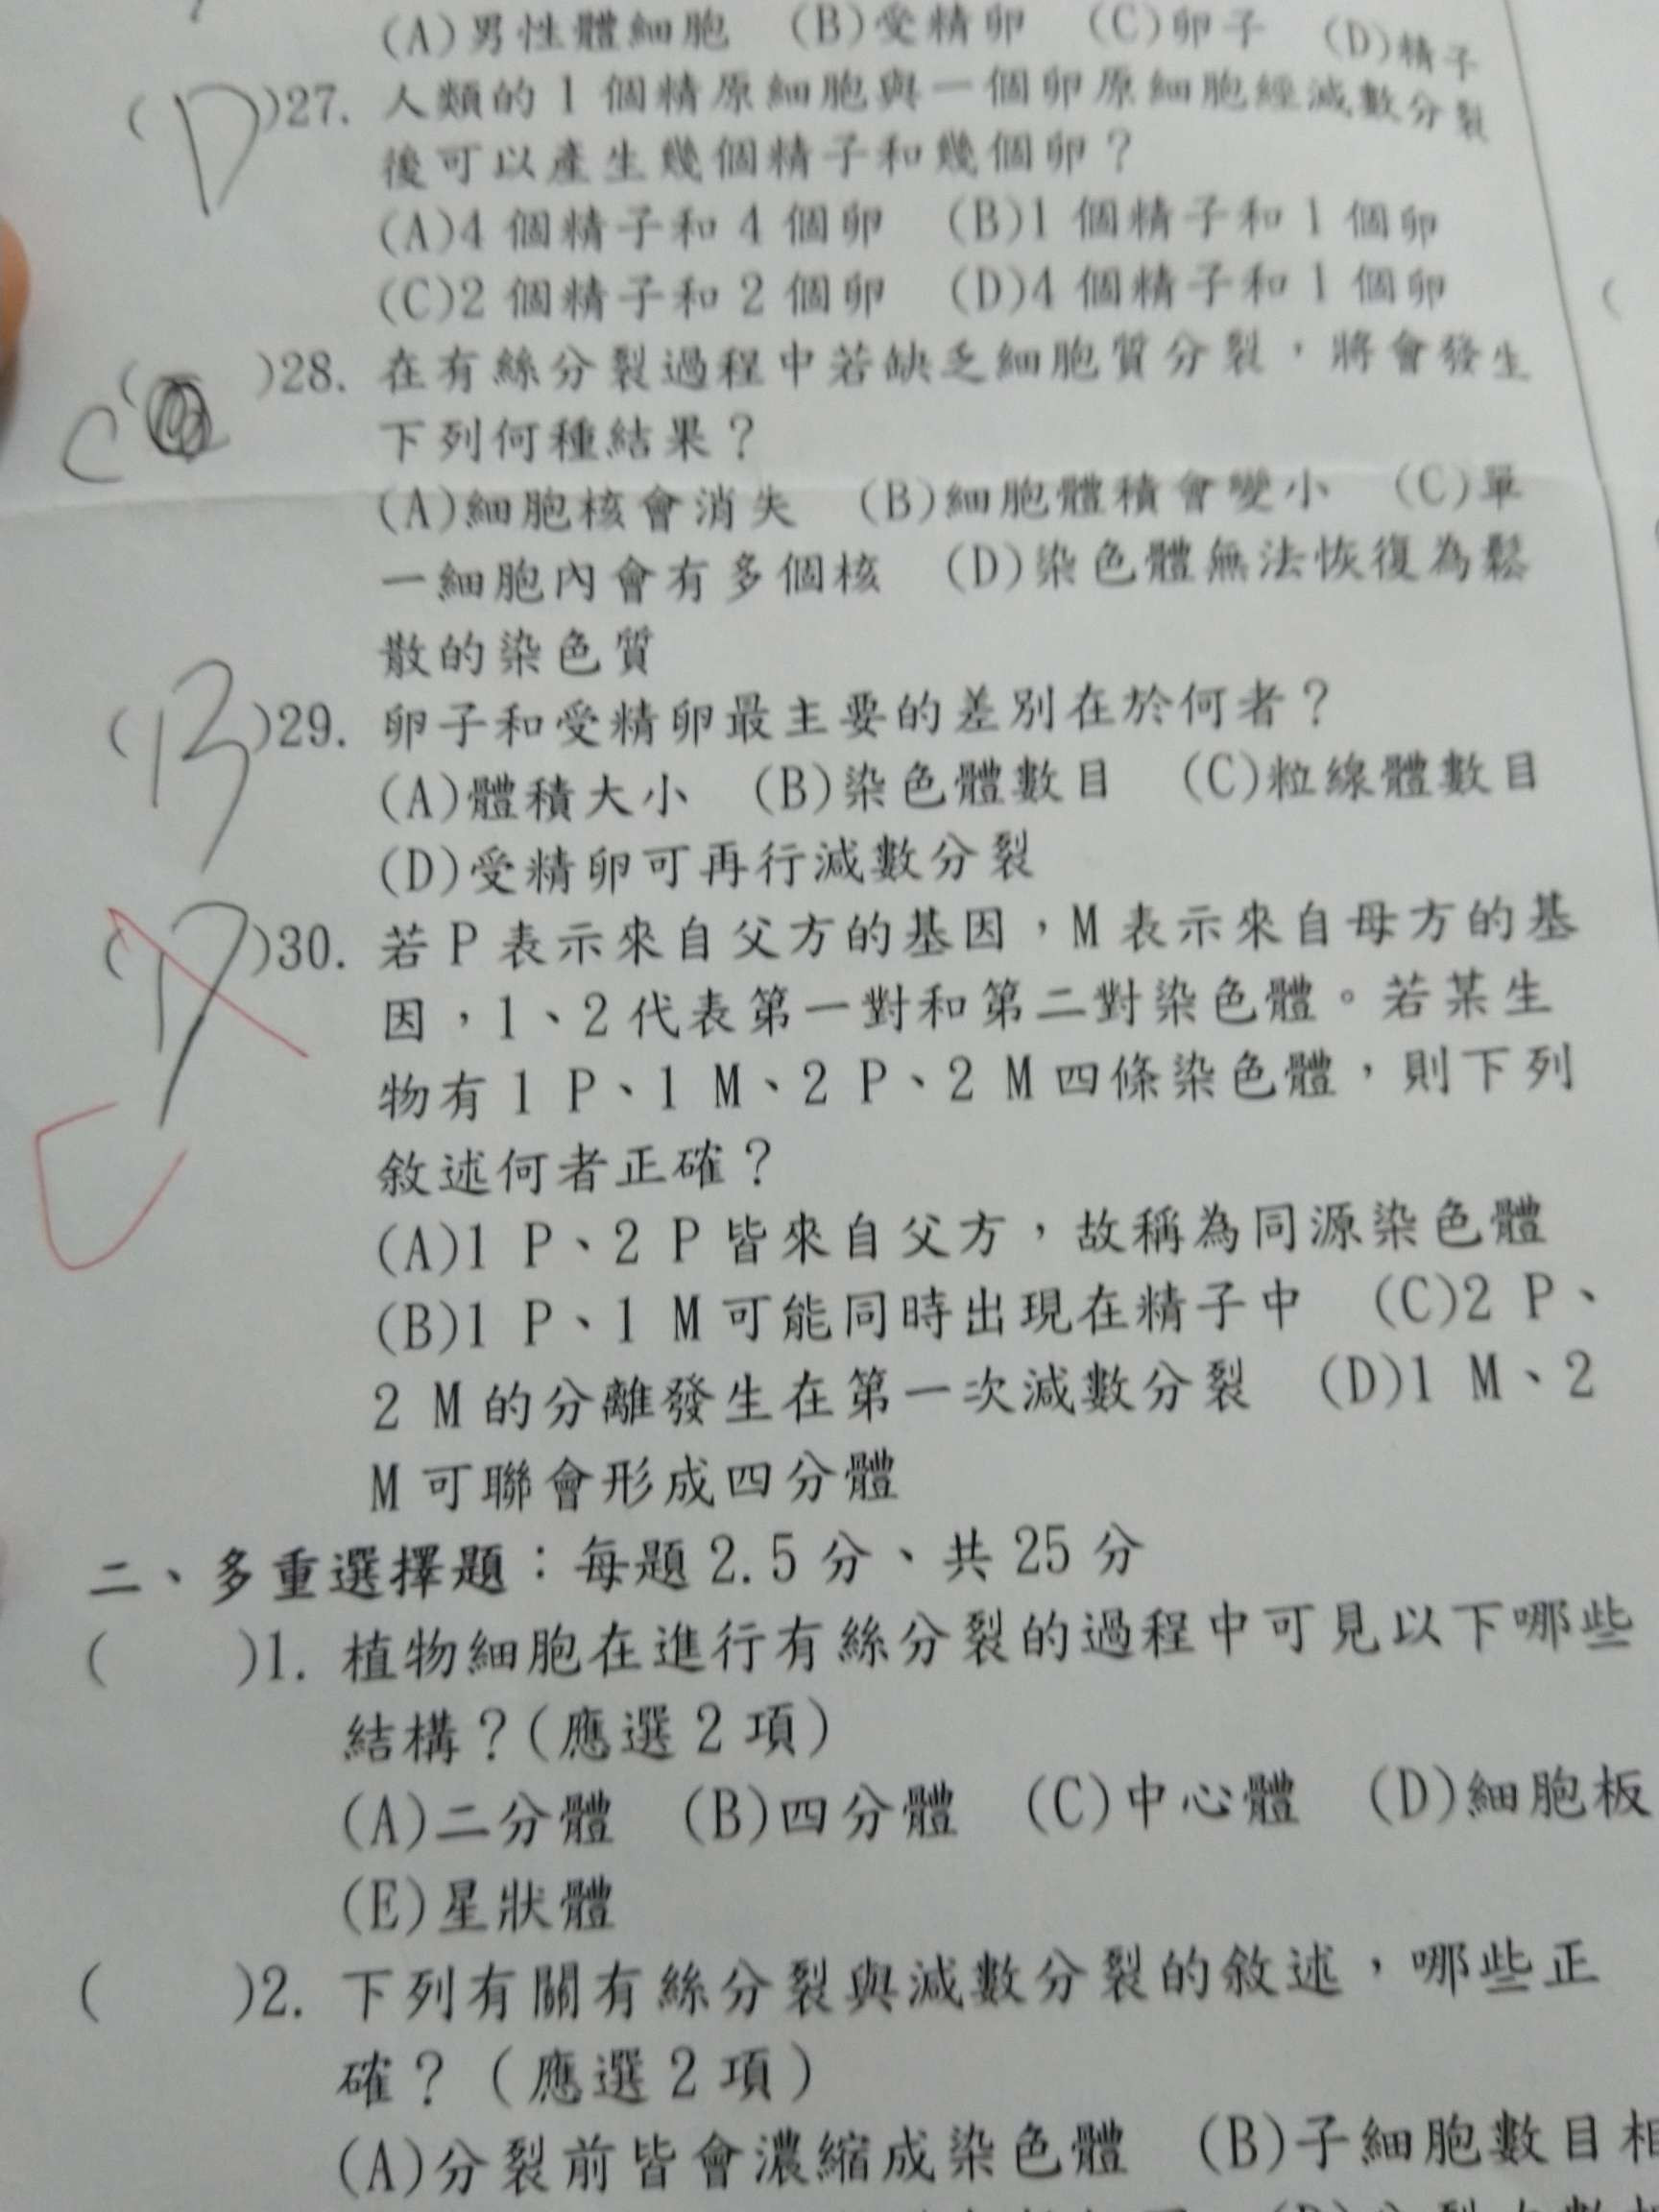 (A)男性體細胞 (B)受精卵 (C)卵子 (D)精子
(D)27. 人類的1個精原細胞與一個卵原細胞經減數分裂
後可以產生幾個精子和幾個卵?
(A)4個精子和4個卵 (B)1個精子和1個卵
(C)2個精子和2個卵 (D)4個精子和1個卵
C( )28. 在有絲分裂過程中若缺乏細胞質分裂,將會發生
下列何種結果?
(A)細胞核會消失 (B)細胞體積會變小 (C)單
一細胞內會有多個核 (D)染色體無法恢復為鬆
散的染色質
(B)29. 卵子和受精卵最主要的差別在於何者?
(A)體積大小 (B)染色體數目 (C)粒線體數目
(D)受精卵可再行減數分裂
(D)30. 若P表示來自父方的基因,M表示來自母方的基
C
因,1、2代表第一對和第二對染色體。若某生
物有1 P、1 M、2 P、2 M四條染色體,則下列
敘述何者正確?
(A)1 P、2 P皆來自父方,故稱為同源染色體
(B)1 P、1 M可能同時出現在精子中 (C)2 P、
2 M的分離發生在第一次減數分裂 (D)1 M、2
M可聯會形成四分體
二、多重選擇題:每題2.5分、共25分
( )1. 植物細胞在進行有絲分裂的過程中可見以下哪些
結構?(應選2項)
(A)二分體 (B)四分體 (C)中心體 (D)細胞板
(E)星狀體
( )2. 下列有關有絲分裂與減數分裂的敘述,哪些正
確?(應選2項)
(A)分裂前皆會濃縮成染色體 (B)子細胞數目相